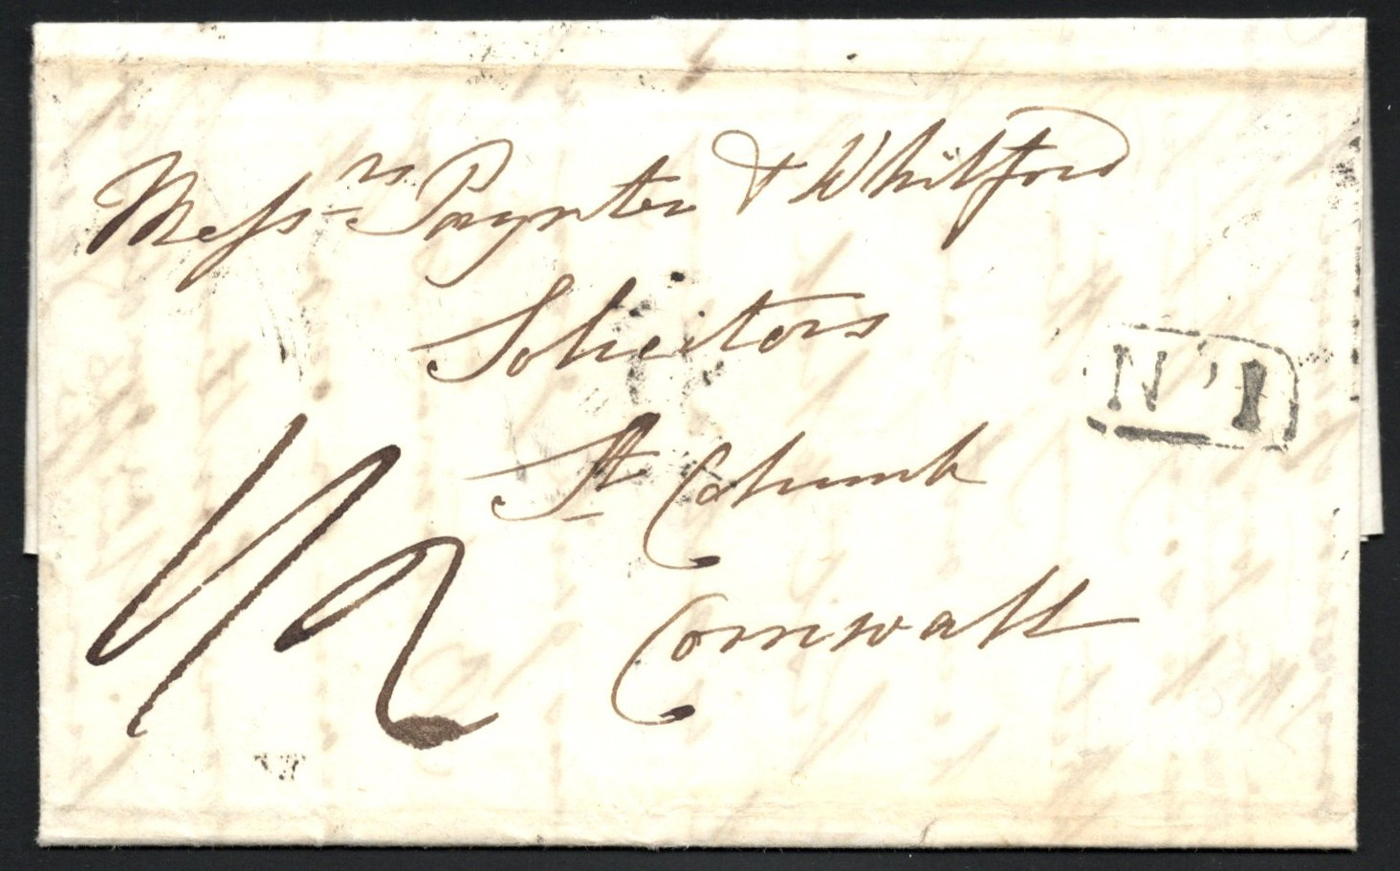 Messrs Paynter & Whitford
Solicitors
St Columb
Cornwall
No 1
1/2